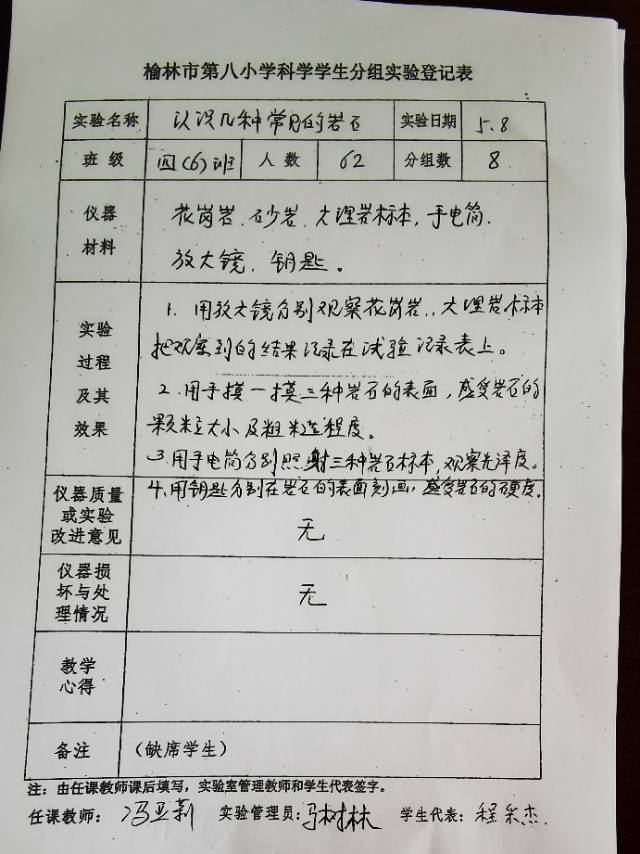 榆林市第八小学科学学生分组实验登记表
实验名称 认识几种常见的岩石 实验日期 5.8
班 级 四(6)班 人 数 62 分组数 8
仪器
材料
花岗岩、砂岩、大理岩标本,手电筒、
放大镜、钥匙。
实验
过程
及其
效果
1. 用放大镜分别观察花岗岩、、大理岩标本
把观察到的结果记录在试验记录表上。
2. 用手摸一摸三种岩石的表面,感受岩石的
颗粒大小及粗糙程度。
3. 用手电筒分别照射三种岩石标本,观察光泽度。
4. 用钥匙分别在岩石的表面刻画,感受岩石的硬度。
仪器质量
或实验
改进意见
无
仪器损
坏与处
理情况
无
教学
心得
备注 (缺席学生)
注:由任课教师课后填写,实验室管理教师和学生代表签字。
任课教师:冯亚莉 实验管理员:马树林 学生代表:程乐杰